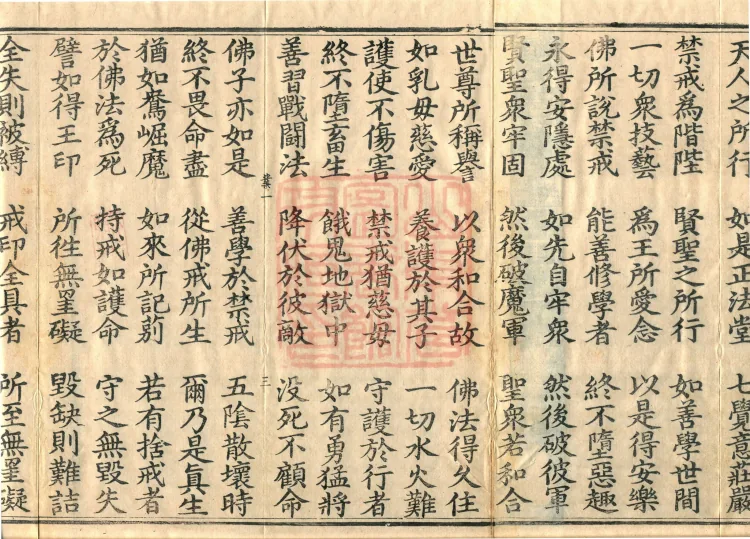 天人之所行 如是正法堂 七覺意莊嚴
禁戒為階陛 賢聖之所行 如善學世間
一切衆技藝 為王所愛念 以是得安樂
佛所說禁戒 能善修學者 終不墮惡趣
永得安隱處 如先自牢衆 然後破彼軍
賢聖衆牢固 然後破魔軍 聖衆若和合
世尊所稱譽 以衆和合故 佛法得久住
如乳母慈愛 養護於其子 一切水火難
護使不傷害 禁戒猶慈母 守護於行者
終不墮畜生 餓鬼地獄中 如有勇猛將
善習戰鬪法 降伏於彼敵 没死不顧命
業一 三
佛子亦如是 善學於禁戒 五陰散壞時
終不畏命盡 從佛戒所生 爾乃是眞生
猶如鴦崛魔 如來所記莂 若有捨戒者
於佛法為死 持戒如護命 守之無毀失
譬如得王印 所徃無罣礙 毀缺則難詰
全失則被縛 戒印全具者 所至無罣礙